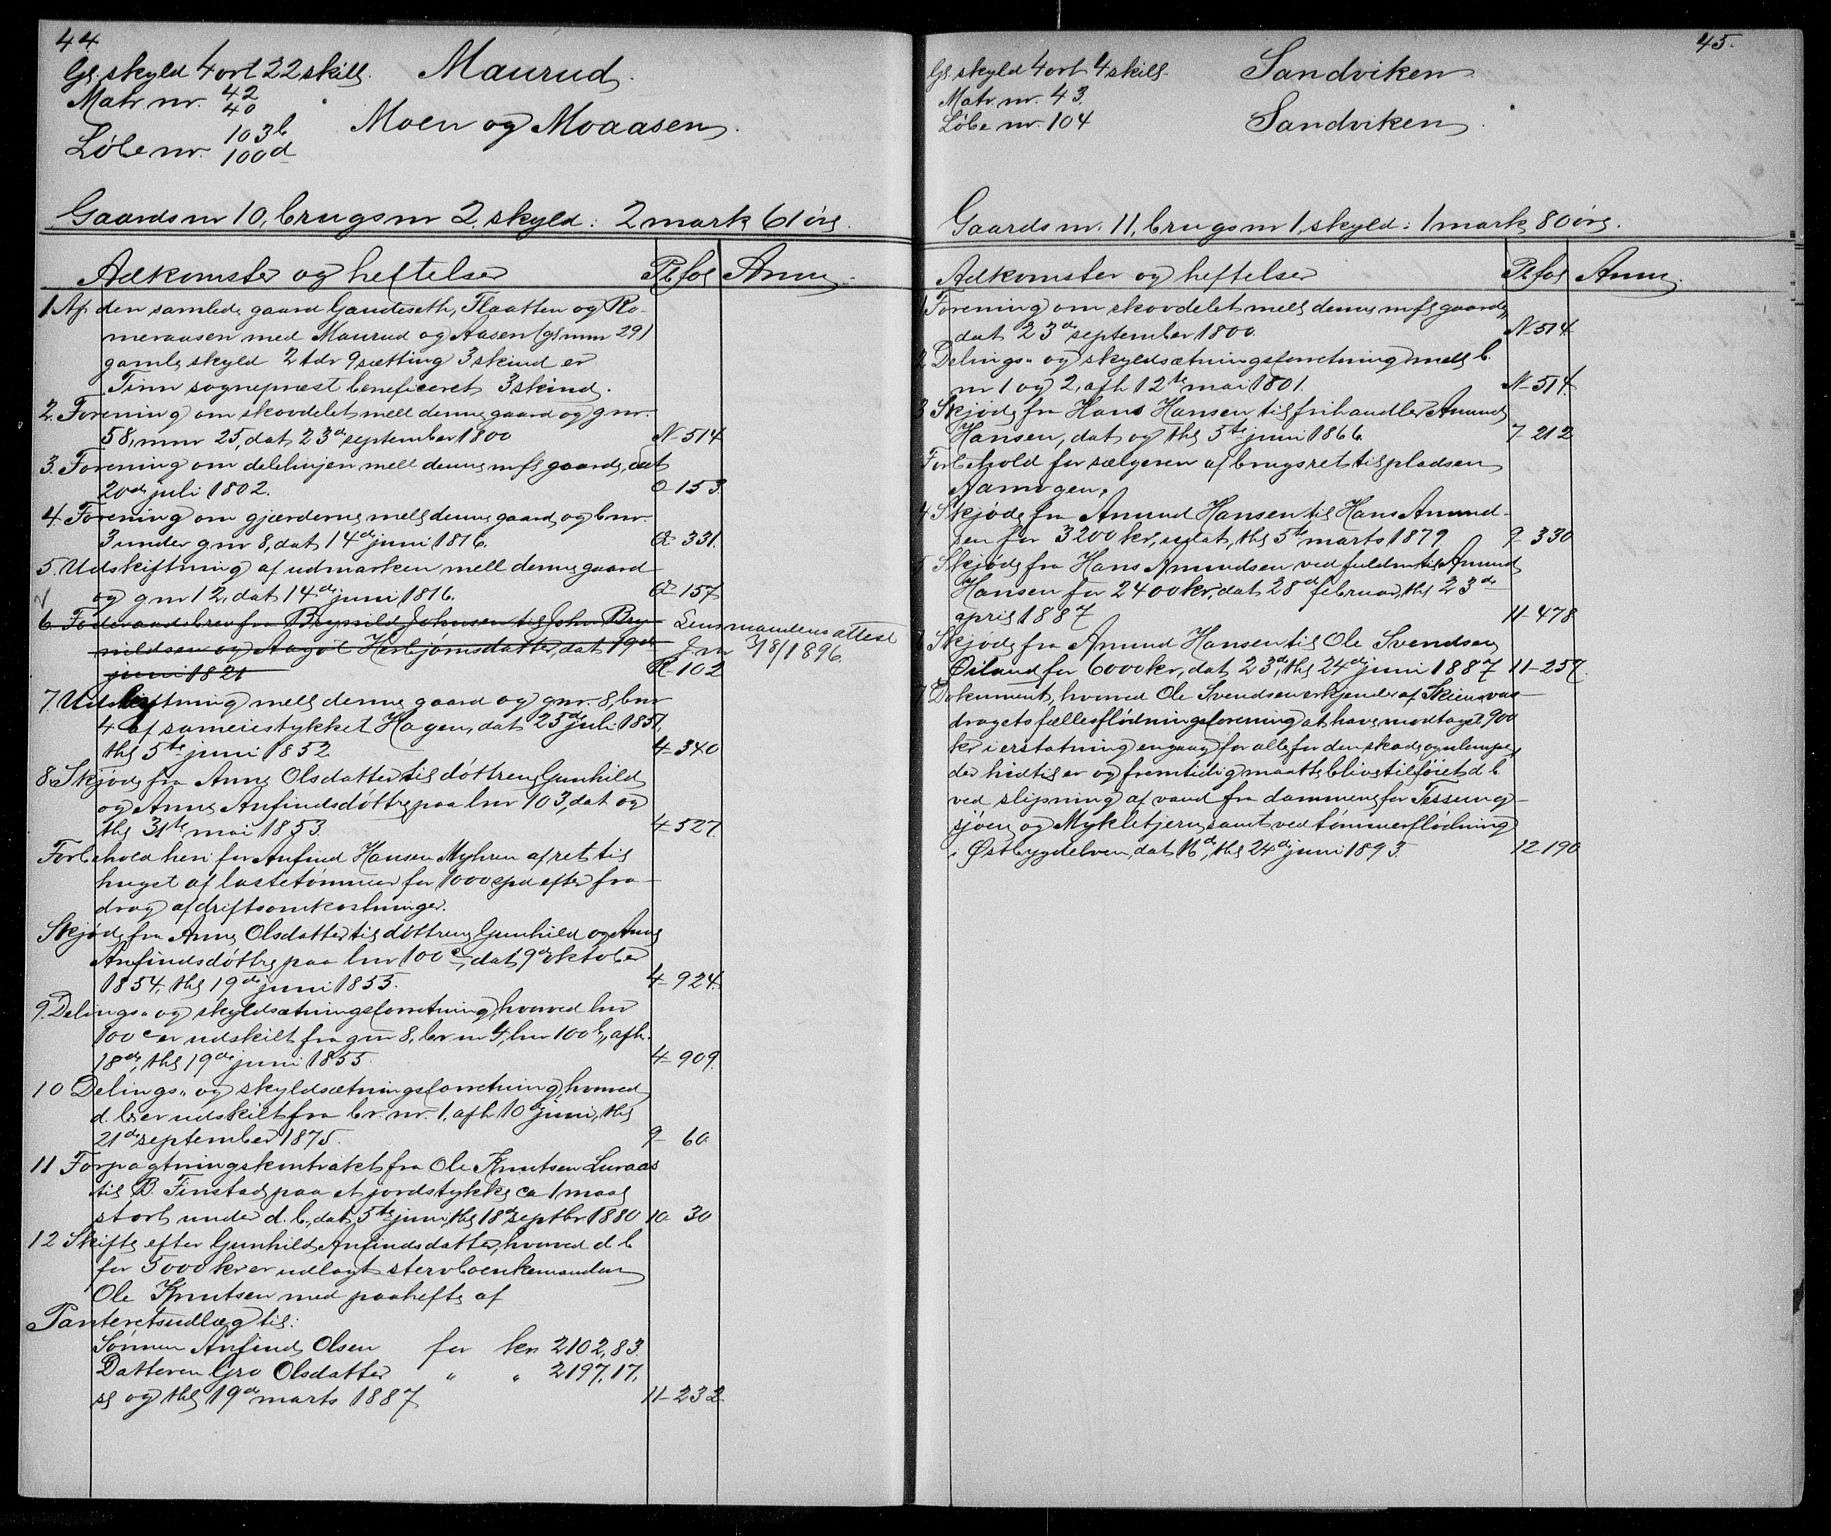 44
Gl. skyld 4 ort 22 skill. Maurud.
Matr. nr. 42
40
Moen og Moaasen.
Løbe nr. 103b
100d
Gaards nr 10, brugs nr 2, skyld: 2 mark 61 øre.
Adkomster og heftelser Pb fol Anm.
1 Af den samlede gaard Gaudeseth, Flaatten og Ro-
meraasen med Maurud og Aasen (gl mnr 29)
gamle skyld 2 tdr 9 sætting 3 skind er
Tinn sogneprest beneficeret 3 skind.
2. Forening om skovdelet mell denne gaard og gnr.
58, mnr 25, dat 23de september 1800 N 514
3. Forening om delelinjen mell denne mfl gaarde, dat
20de juli 1802. O 153
4 Forening om gjærderne mell denne gaard og bnr.
3 under gnr 8, dat 14de juni 1816. Q 331.
5. Udskiftning af udmarken mell denne gaard
og gnr 12, dat 14de juni 1816. Q 157
6 Føderaadsbrev fra Brynild Johnsen til John Bry- Lensmandens attest
nildsen og Aagot Herbjørnsdatter, dat 19de Jnr 3/8/1896.
juni 1821 R 102
7 Udskiftning mell denne gaard og gnr. 8, bnr
4 af sameiestykket Hagen, dat 25de juli 1851
thl 5te juni 1852 4 340
8 Skjøde fra Anne Olsdatter til døttrene Gunhild
og Anne Anfindsdøttre paa lnr 103, dat og
thl 31te mai 1853. 4 527
Forbehold heri for Anfind Hansen Myhren af ret til
huget af lastetømmer for 1000 spd efter fra-
drag af driftsomkostninger.
Skjøde fra Anne Olsdatter til døttrene Gunhild og Anne
Anfindsdøttre paa lnr 100c, dat 9de oktober
1854, thl 19de juni 1855. 4 924.
9. Delings- og skyldsætningsforretning, hvorved lnr
100c er udskilt fra gnr 8, br nr 4, lnr 100b, afh.
18de, thl 19de juni 1855. 4 909.
10 Delings- og skyldsætningsforretning, hvorved
d. b. er udskilt fra br. nr. 1, afh 10de juni, thl
21de september 1875. 9 60
11 Forpagtningskontrakt fra Ole Knutsen Luraas
til B. Finstad paa et jordstykke ca 1 maal
stort under d. b., dat 5te juni, thl 18de septbr 1880 10 30
12 Skifte efter Gunhild Anfindsdatter, hvorved d b
for 5000 kr er udlagt stervboenkemanden
Ole Knutsen med paahefte af
Panteretsudlæg til:
Sønnen Anfind Olsen for kr 2102,83.
Datteren Gro Olsdatter " " 2197,17.
sl og thl 19de marts 1887 11 232
45.
Gl. skyld 4 ort 4 skill. Sandviken
Matr. nr. 43.
Løbe nr. 104 Sandviken.
Gaards nr. 11, brugs nr 1, skyld: 1 mark 80 øre.
Adkomster og heftelser Pb fol Anm.
1 Forening om skovdelet mell denne mfl gaarde,
dat 23de september 1800. N 514.
2 Delings- og skyldsætningsforretning mell b
nr 1 og 2, afh 12te mai 1801. N 514.
3 Skjøde fra Hans Hansen til frihandler Amund
Hansen, dat og thl 5te juni 1866 7 212
Forbehold for sælgeren af brugsret til pladsen
4 Skjøde fra Amund Hansen til Hans Amund-
sen for 3200 kr, udat, thl 5te marts 1879 9 330
5 Skjøde fra Hans Amundsen ved fuldm til Amund
Hansen for 2400 kr, dat 28de februar, thl 23de
april 1887 11 478
6 Skjøde fra Amund Hansen til Ole Svendsen
Øiland for 6000 kr, dat 23de, thl 24de juni 1887 11 257.
7 Dokument, hvorved Ole Svendsen erkjender af Skiensvas-
dragets fællesflødningsforening at have modtaget 900
kr i erstatning engang for alle for den skade og ulempe,
der hidtil er og fremtidig maatte blive tilføiet d b
ved slipning af vand fra dammene for Tessung-
sjøen og Mykletjern samt ved tømmerflødning
i Østbygdelven, dat 16de, thl 24de juni 1893. 12 190